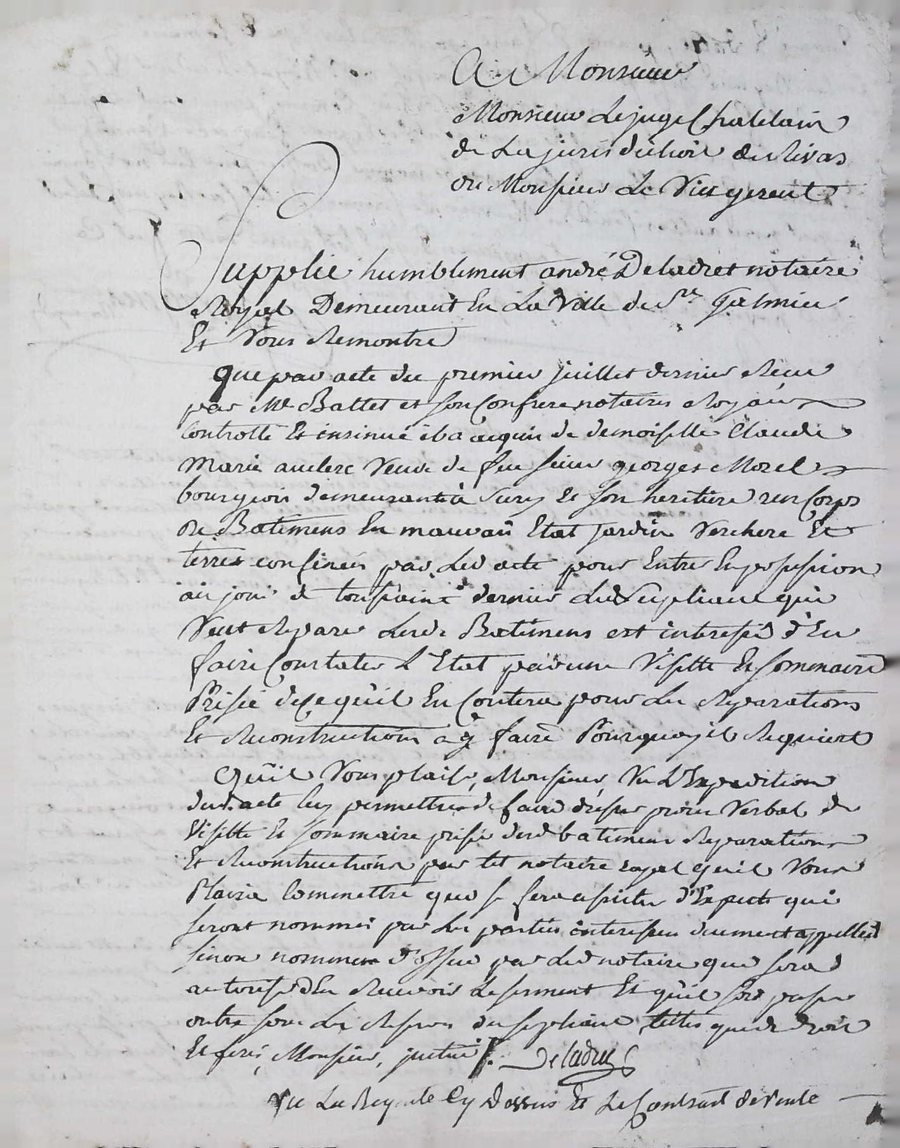 A Monsieur
Monsieur Le juge Chatelain
de La jurisdiction de Rivas
ou Monsieur Le Vice gerent
Supplie humblement andré Deladret notaire
Royal Demeurant En La Ville de St. Galmier
Et Vous Remontre
que par acte du premier juillet dernier Recu
par Me Battet et son Confrere notaires Royaux
Controllé Et insinué il a acquis de demoiselle Claudie
Marie auclerc Veuve de feu sieur georges Morel
bourgeois demeurant à Sury Et son heritiere un Corps
de Batimens En mauvais Etat jardin Verchere Et
terres confinés par Led acte pour Entrer En possession
au jour de toussaint dernier Led Supliant qui
Veut Reparer Lesd. Batimens est interessé d'En
faire Constater L'Etat par une Visitte Et Sommaire
Prisée de Ce qu'il En Coutera pour Les Reparations
Et Reconstructions à y faire Pourquoy il Requiert
Qu'il Vous plaise, Monsieur, Vu L'Expedition
dud. acte luy permettre de faire dresser procès Verbal de
Visitte Et Sommaire prisée desd batimens Reparations
Et Reconstructions par tel notaire royal qu'il Vous
Plaira Commettre que se fera assister d'Experts qui
seront nommés par Les parties interessées duement appellées
sinon nommés d'office par led notaire que sera
autorisé d'En Recevoir Le serment Et qu'il soit
outre sous Les Reserves du supliant telles que de droit
Et ferés, Monsieur, justice. Deladret
Vu La Requete Cy Dessus Et Le Contract de Vente